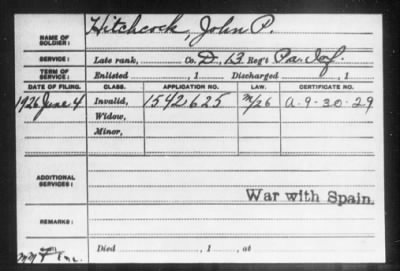 NAME OF SOLDIER: Hitchcock, John P.
SERVICE: Late rank, Co. D, 13 Reg't Pa. Inf.
TERM OF SERVICE: Enlisted , 1 Discharged , 1
DATE OF FILING. CLASS. APPLICATION NO. LAW. CERTIFICATE NO.
1926 June 4 Invalid, 1542625 M/26 A-9-30-29
Widow,
Minor,
ADDITIONAL SERVICES:
War with Spain.
REMARKS:
Died , 1 , at